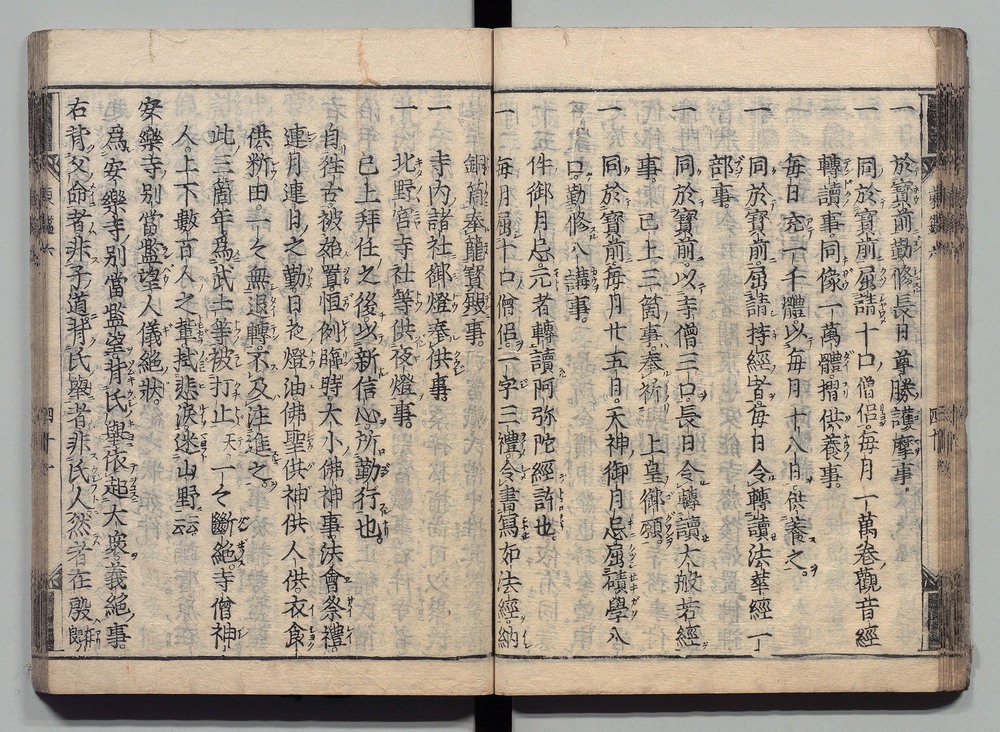 一 於寶前勤修長日尊勝護摩事。
一 同於寶前屈請十口僧侶。每月一萬卷觀音經
轉讀事同像一萬體摺供養事。
每日充一千體以每月十八日供養之。
一 同於寶前屈請持經者每日令轉讀法華經一
部事
一 同於寶前以寺僧三口。長日令轉讀大般若經
事 已上三箇事奉祈 上皇御願
一 同於寶前每月廿五日。天神御月忌屈碩學八
口。勤修八講事。
件御月忌元者轉讀阿弥陀經許也
一 每月屈十口僧侶。一字三禮令書寫如法經。納
銅筒奉籠寶殿事。
一 寺內諸社御燈奉供事
一 北野宮寺社等供夜燈事。
已上拜任之後。以新信心。所勤行也。
自往古。被始置恒例臨時。大小佛神事。法會祭禮。
連月連日之勤日夜燈油佛聖供神供人供。衣食
供析田一々無退轉。不及注進之。
此三箇年爲武士等被打止 天 一々斷絶。寺僧神
人。上下數百人之輩拭悲淚迷山野云云
安樂寺別當濫望人儀絶狀。
爲安樂寺別當濫望背氏擧依起大衆義絶事。
右背父命者非子道背氏擧者非氏人然者在殿
東鑑六
四十
四十一